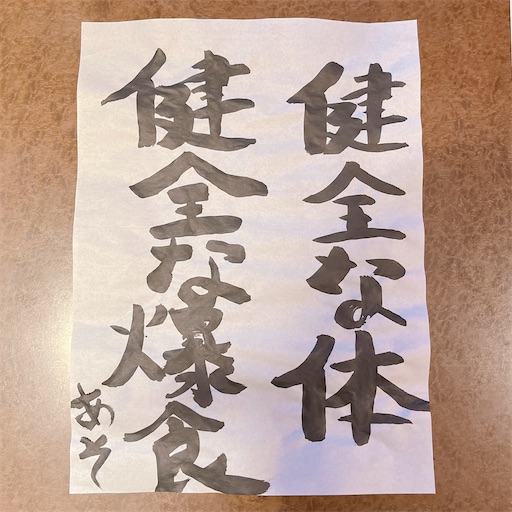 健全な体
健全な爆食
あそ